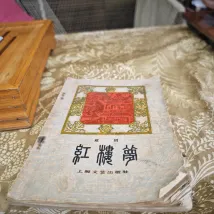 紅樓夢
上海文艺出版社